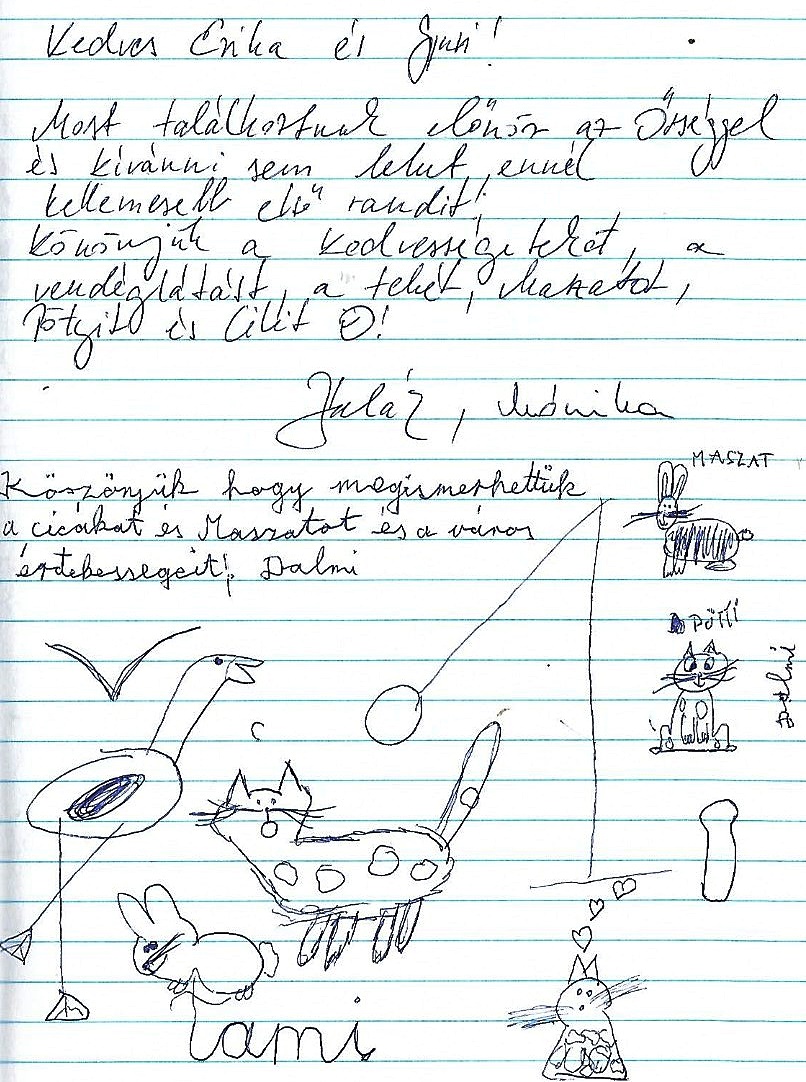 Kedves Erika és Gyuri!
Most találkoztunk először az Őrséggel
és kívánni sem lehet ennél
kellemesebb első randit!
Köszönjük a kedvességeteket, a
vendéglátást, a tehét, Maszatot,
Pötyit és Cilit !
Balázs, Mónika
Köszönjük hogy megismerhettük
a cicákat és Maszatot és a város
érdekességeit! Dalmi
MASZAT
PÖTTI
Dalmi
Tami